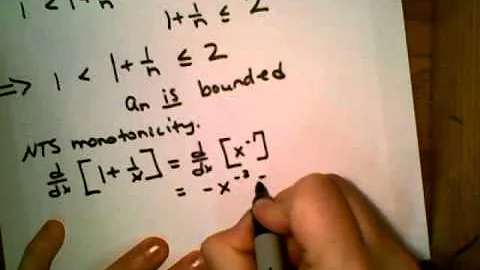 1 < 1 + 1/n
1 + 1/n ≤ 2
=> 1 < 1 + 1/n ≤ 2
an is bounded
NTS monotonicity.
d/dx [1 + 1/x] = d/dx [x^-1]
= -x^-2 =